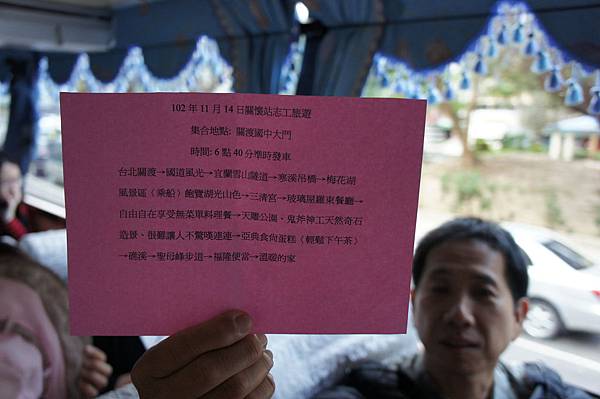 102 年 11 月 14 日關懷站志工旅遊
集合地點: 關渡國中大門
時間: 6 點 40 分準時發車
台北關渡→國道風光→宜蘭雪山隧道→寒溪吊橋→梅花湖
風景區〈乘船〉飽覽湖光山色→三清宮→玻璃屋羅東餐廳→
自由自在享受無菜單料理餐→天雕公園、鬼斧神工天然奇石
造景、很難讓人不驚嘆連連→亞典食尙蛋糕〈輕鬆下午茶〉
→礁溪→聖母峰步道→福隆便當→溫暖的家